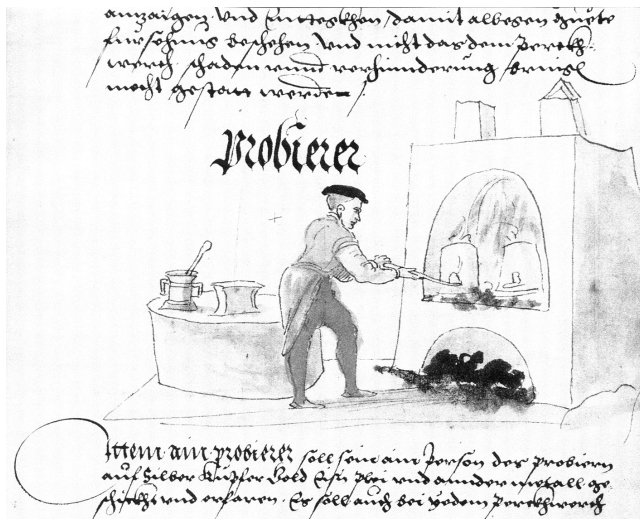 anzaigen und Enttegkhen, damit albegen guete
fürsehung beschehen und nicht das dem Perckh-
werch schaden unnd verhinderung
mocht gestatt werden
Probierer
Ittem ain probierer soll sein ain Person des probiern
auf Silber Kupfer Gold Eisn Plei und annder metall ge
schickht und erfaren. Es soll auch bei yedem Perckhwerch